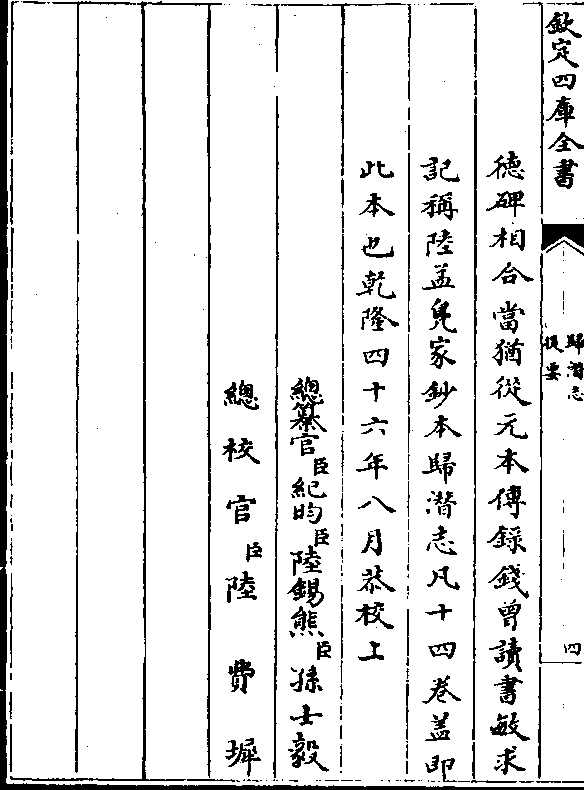 欽定四庫全書
歸潛志
提要
四
德碑相合當猶從元本傳錄錢曾讀書敏求
記稱陸孟鳧家鈔本歸潛志凡十四卷蓋即
此本也乾隆四十六年八月恭校上
總纂官臣紀昀臣陸錫熊臣孫士毅
總校官臣陸費墀